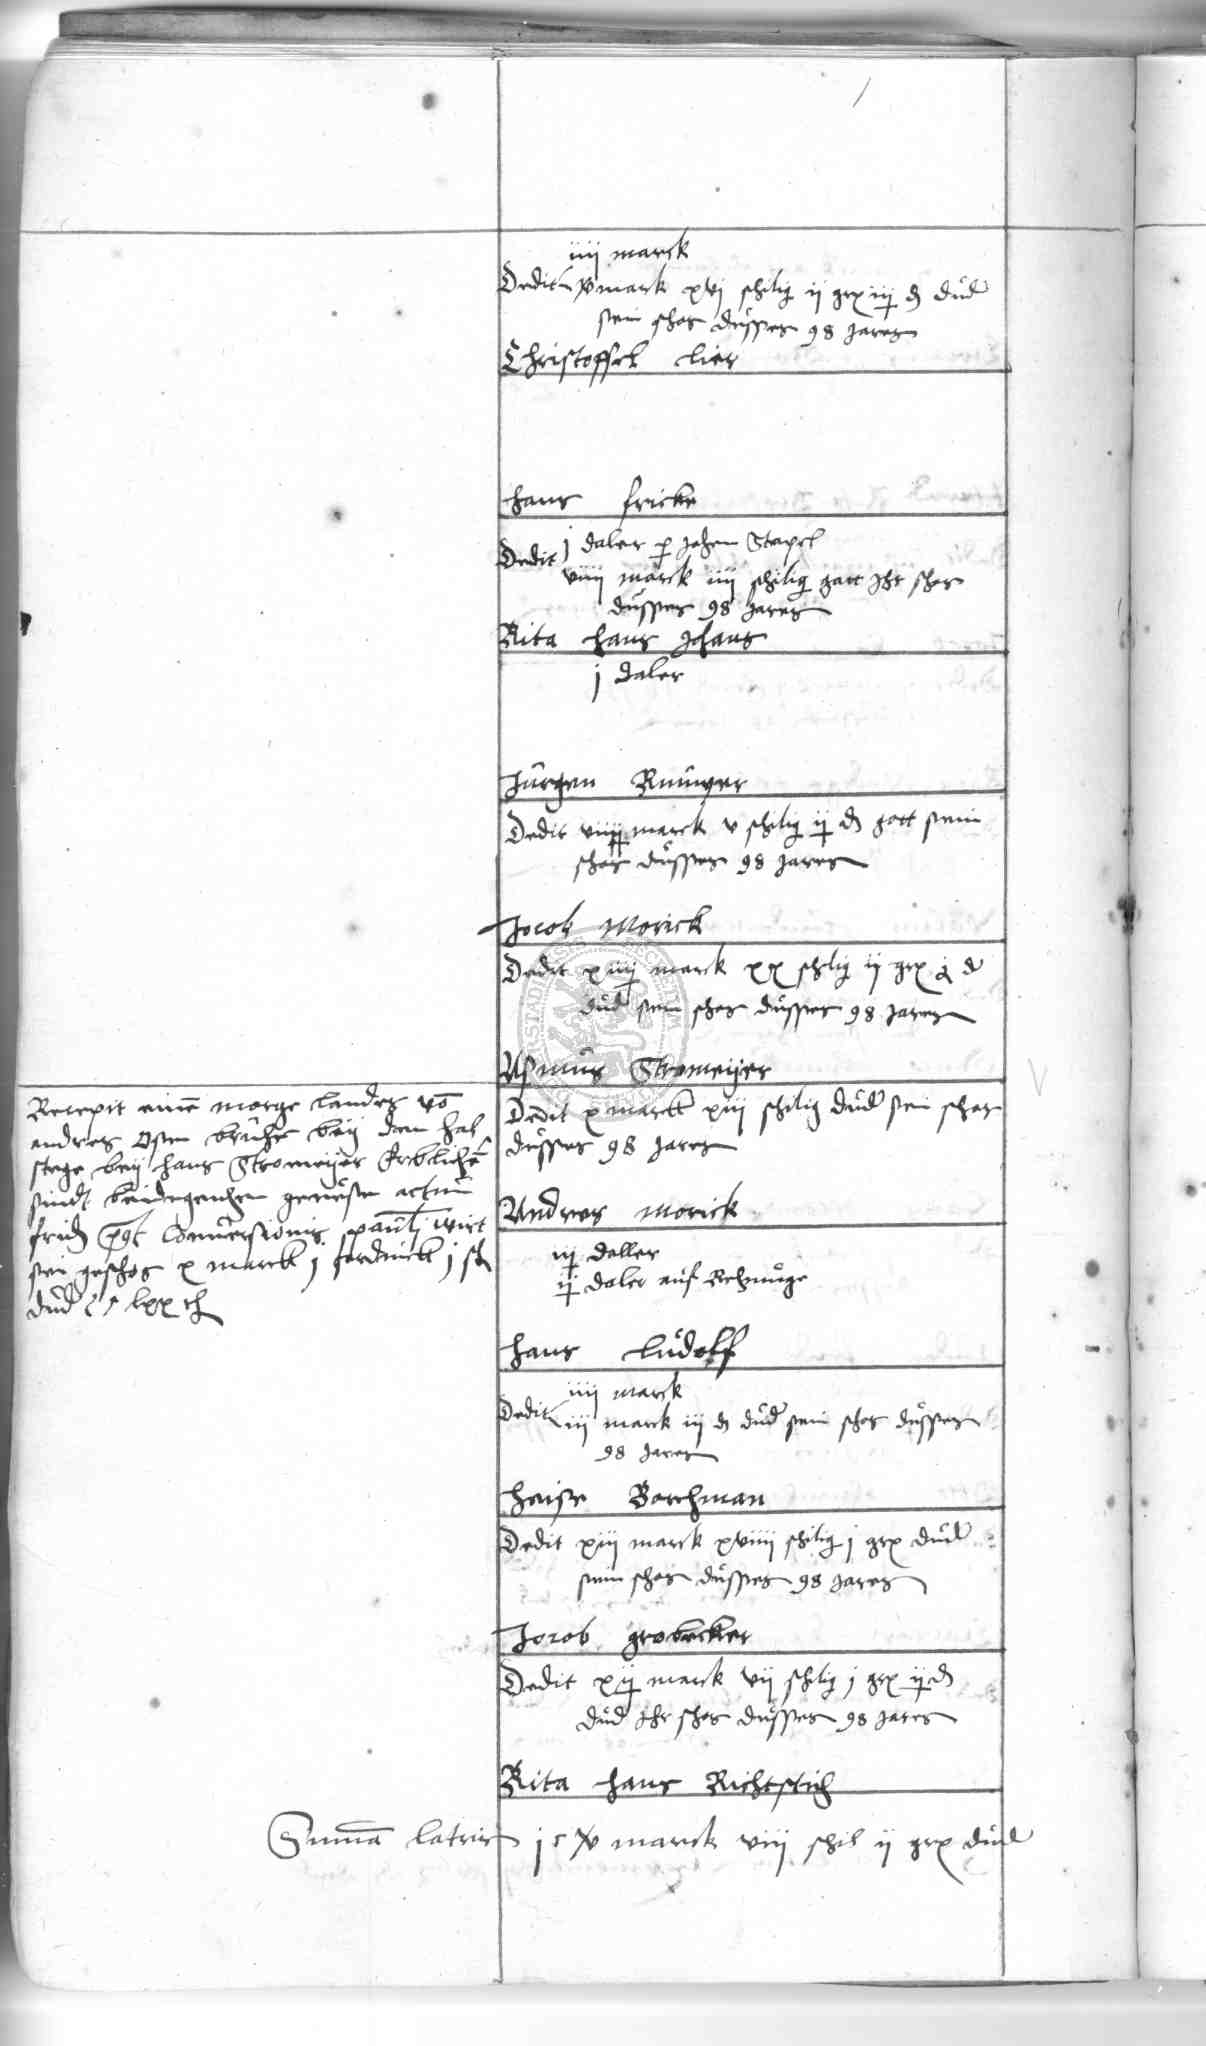 iiij marck
Dedit v marck xvj schilig ij grx iij d dud
sein schos dusses 98 jares
Christoffel Lier
Hans Fricke
j daler p Johem Stapel
Dedit
viiij marck iiij schilig gatt Ihr schos
dusses 98 jares
Rita Hans Johans
j daler
Jurgen
Dedit viiij marck v schilig ij d gott sein
schos dusses 98 jares
Jocob Morick
Dedit xiiij marck xx schilig ij grx d
dud sein schos dusses 98 jares
Asmus Stromeijer
Recepit eine morge landes vo
andres Osen bruche beij dem hal
stege beij hans Stromeijer Erbliche
actum
Conversionis pauli wirt
sein geschos x marck j ferdinck j
dud
Dedit x marck xiij schilig dud sein schos
dusses 98 jares
Andres Morick
iij daller
ij daler auf Rechnuge
Hans Ludolf
iiij marck
Dedit iij marck iij d dud sein schos dusses
98 jares
Borchman
Dedit xiij marck xviiij schilig j grx dud
sein schos dusses 98 jares
Jocob grobecker
Dedit xij marck vij schilig j grx ij d
dud Ihr schos dusses 98 jares
Rita Hans Richtstich
Suma lateris j c xv marck viij schil ij grx dud